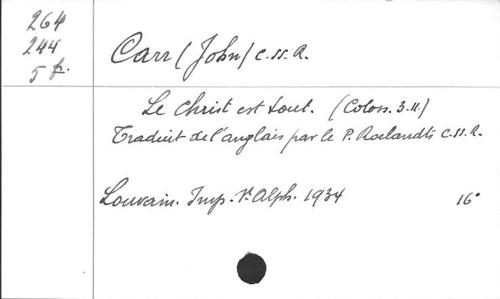 264
244
5 f.
Carr (John) C.SS.R.
Le Christ est tout. (Coloss. 3.11)
Traduit de l'anglais par le P. Roelandts C.SS.R.
Louvain. Imp. St Alph. 1934 16°